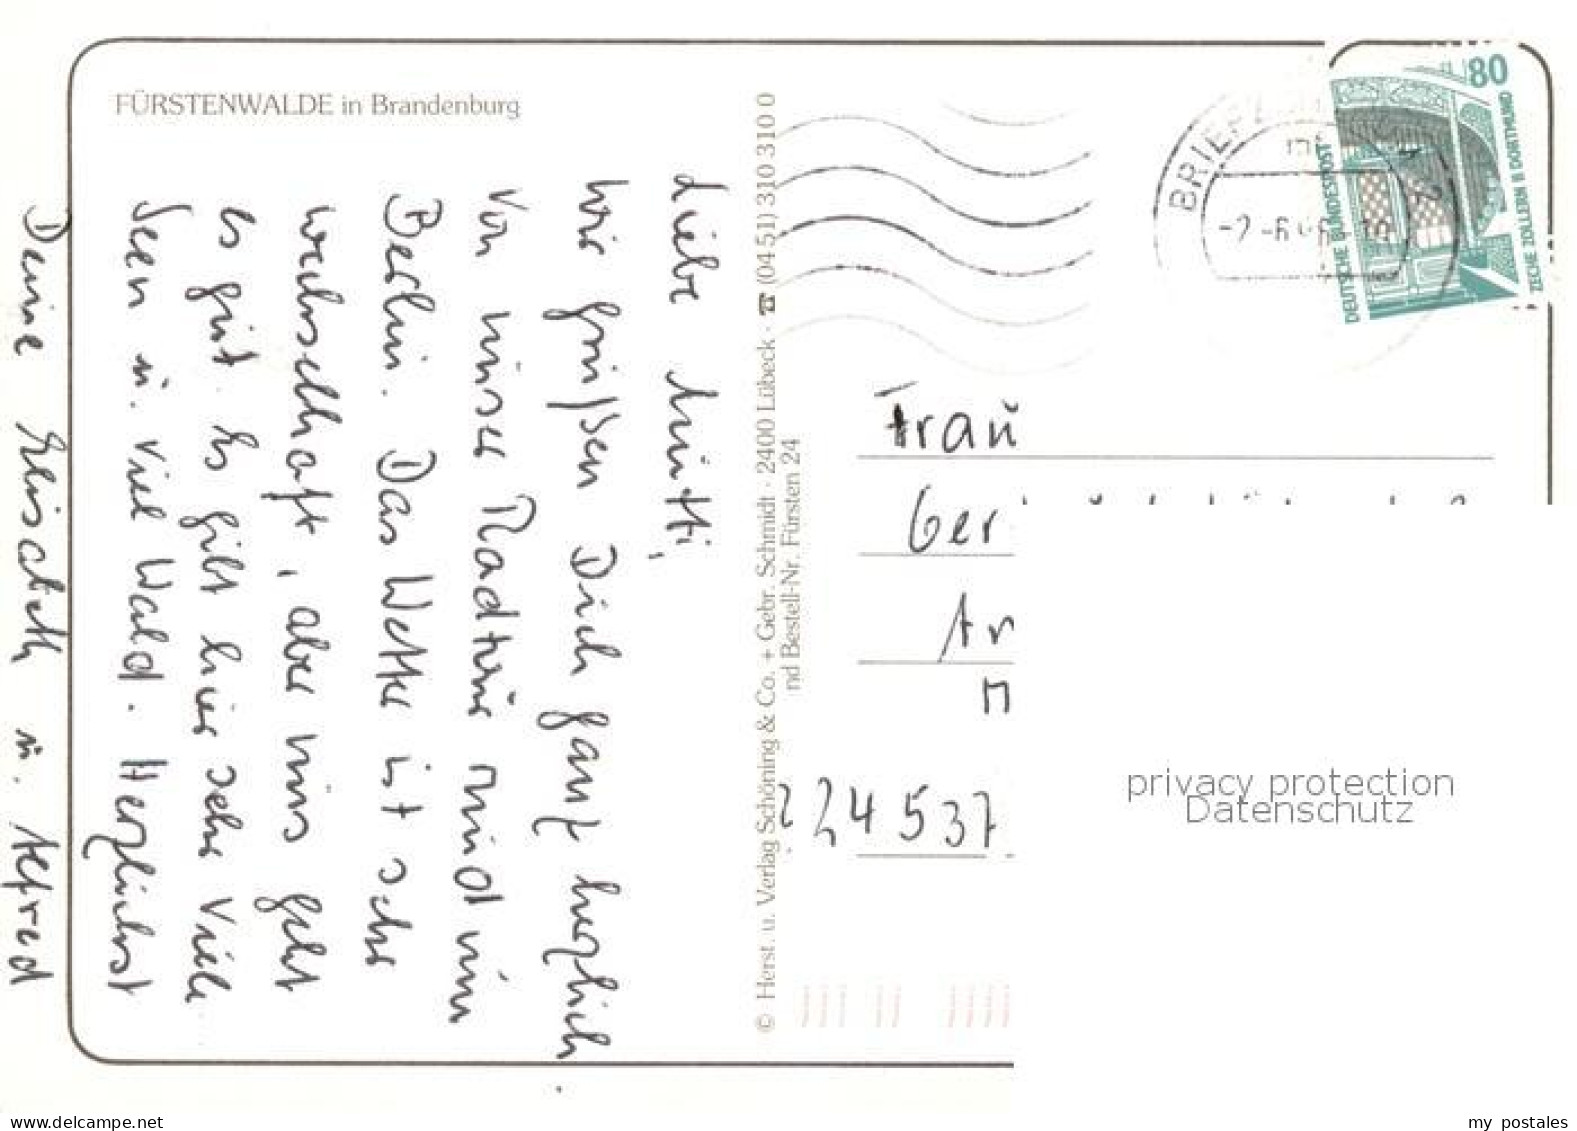 FÜRSTENWALDE in Brandenburg
Liebe Mutti,
wir grüßen Dich ganz herzlich
von unser Radtour rund um
Berlin. Das Wetter ist sehr
wechselhaft, aber uns geht
es gut. Es gibt hier sehr viele
Seen u. viel Wald. Herzlichst
Deine Elisabeth u. Alfred
© Herst. u. Verlag Schöning & Co. + Gebr. Schmidt · 2400 Lübeck · ☎ (04 51) 310 310 0
nd Bestell-Nr. Fürsten 24
BRIEFZ
80
DEUTSCHE BUNDESPOST
ZECHE ZOLLERN II DORTMUND
Frau
Ger
224537
privacy protection
Datenschutz
www.delcampe.net
my postales